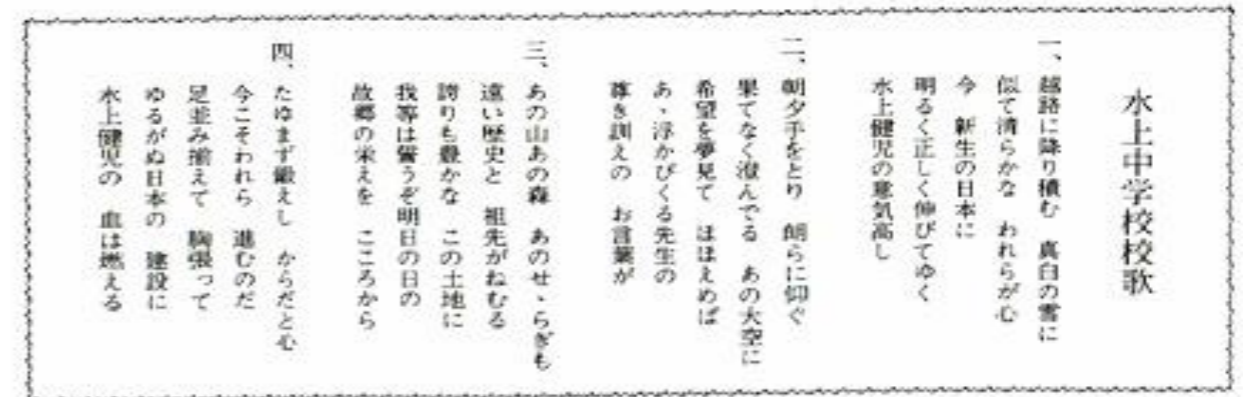 水上中学校校歌
一、越路に降り積む 真白の雪に
似て清らかな われらが心
今 新生の日本に
明るく正しく伸びてゆく
水上健児の意気高し
二、朝夕手をとり 朗らに仰ぐ
果てなく澄んでる あの大空に
希望を夢見て ほほえめば
あゝ浮かびくる先生の
尊き訓えの お言葉が
三、あの山あの森 あのせゝらぎも
遠い歴史と 祖先がねむる
誇りも豊かな この土地に
我等は誓うぞ明日の日の
故郷の栄えを こころから
四、たゆまず鍛えし からだと心
今こそわれら 進むのだ
足並み揃えて 胸張って
ゆるがぬ日本の 建設に
水上健児の 血は燃える